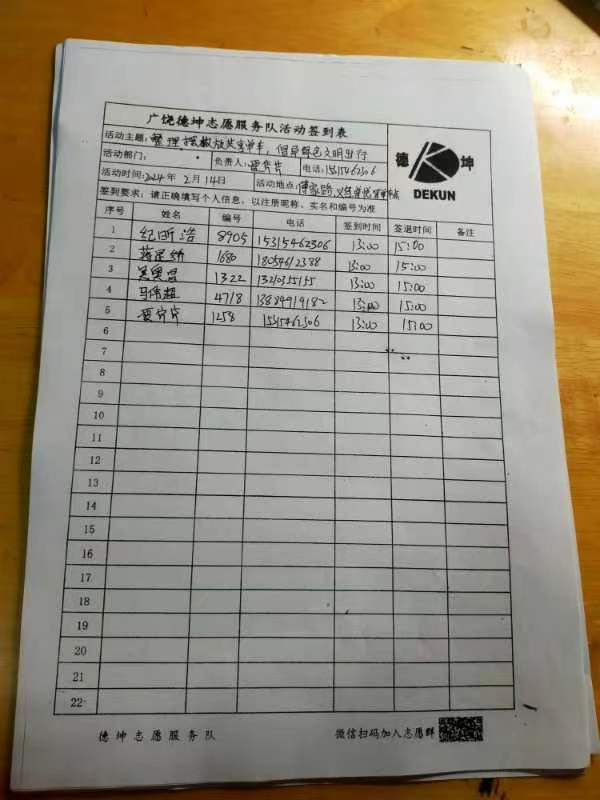 广饶德坤志愿服务队活动签到表
活动主题:整理摆放共享单车,倡导绿色文明出行
活动部门: 负责人: 电话:15315462306
活动时间:2024年2月14日 活动地点:傅家路
签到要求:请正确填写个人信息,以注册昵称、实名和编号为准
德 坤
DEKUN
序号 姓名 编号 电话 签到时间 签退时间 备注
1 纪昕浩 8905 15315462306 13:00 15:00
2 1680 18054612388 13:00 15:00
3 1322 13210355155 13:00 15:00
4 马伟超 4718 13884919182 13:00 15:00
5 1258 15315462306 13:00 15:00
6
7
8
9
10
11
12
13
14
15
16
17
18
19
20
21
22
德坤志愿服务队 微信扫码加入志愿群